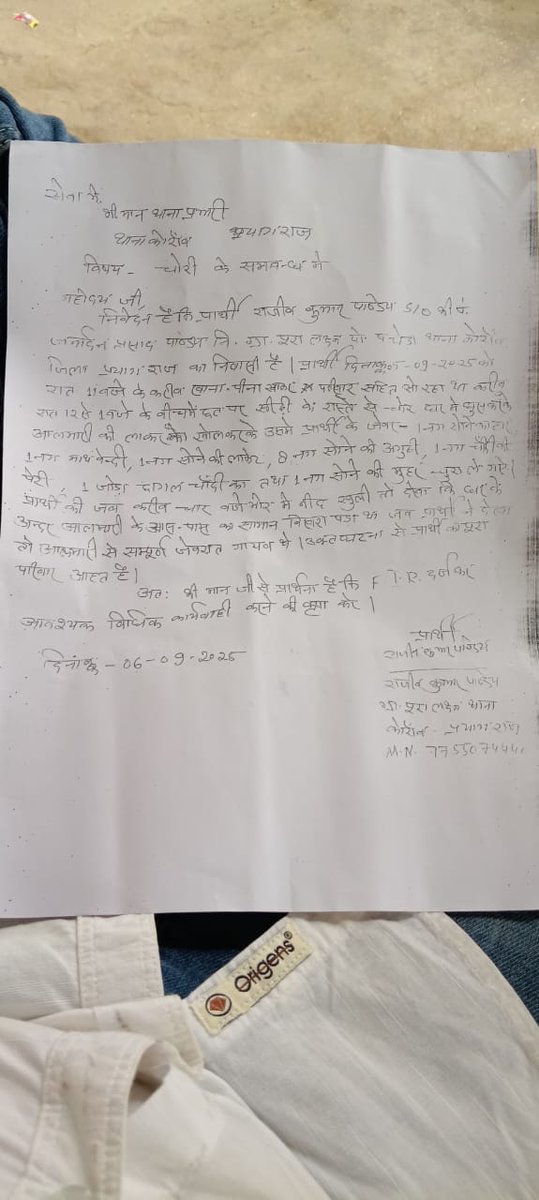 सेवा में,
श्री मान थाना प्रभारी
थाना कोराँव प्रयागराज
विषय - चोरी के सम्बन्ध में
महोदय जी,
निवेदन है कि प्रार्थी राजीव कुमार पाण्डेय S/O
प्रसाद पाण्डेय नि. ग्रा. पूरा लक्षन पो. थाना कोराँव
जिला प्रयागराज का निवासी है। प्रार्थी दिनांक -09-2025 को
रात 11 बजे के करीब खाना-पीना खाकर परिवार सहित सो रहा था करीब
रात 12 से 1 बजे के बीच में छत पर सीढ़ी के रास्ते से चोर घर में घुस करके
आलमारी की लाकर को खोल करके उसमें प्रार्थी के जेवर - 1 नग सोने का हार
1 नग माथ बेन्दी, 1 नग सोने की लाकेट, 8 नग सोने की अगूठी, 1 नग चाँदी की
पेरी, 1 जोड़ा पायल चाँदी का तथा 1 नग सोने की मुहर चुरा ले गए।
प्रार्थी की जब करीब चार बजे भोर में नीद खुली तो देखा कि घर के
अन्दर आलमारी के आस-पास का सामान बिखरा पड़ा था जब प्रार्थी ने देखा
तो आलमारी से सम्पूर्ण जेवरात गायब थे। उक्त घटना से प्रार्थी का पूरा
परिवार आहत है।
अतः श्री मान जी से प्रार्थना है कि F I R दर्ज कर
आवश्यक विधिक कार्यवाही करने की कृपा करें।
दिनांक - 06-09-2025
प्रार्थी
राजीव कुमार पाण्डेय
राजीव कुमार पाण्डेय
ग्रा. पूरा लक्षन थाना
कोराँव - प्रयागराज
M.N.
Origens®